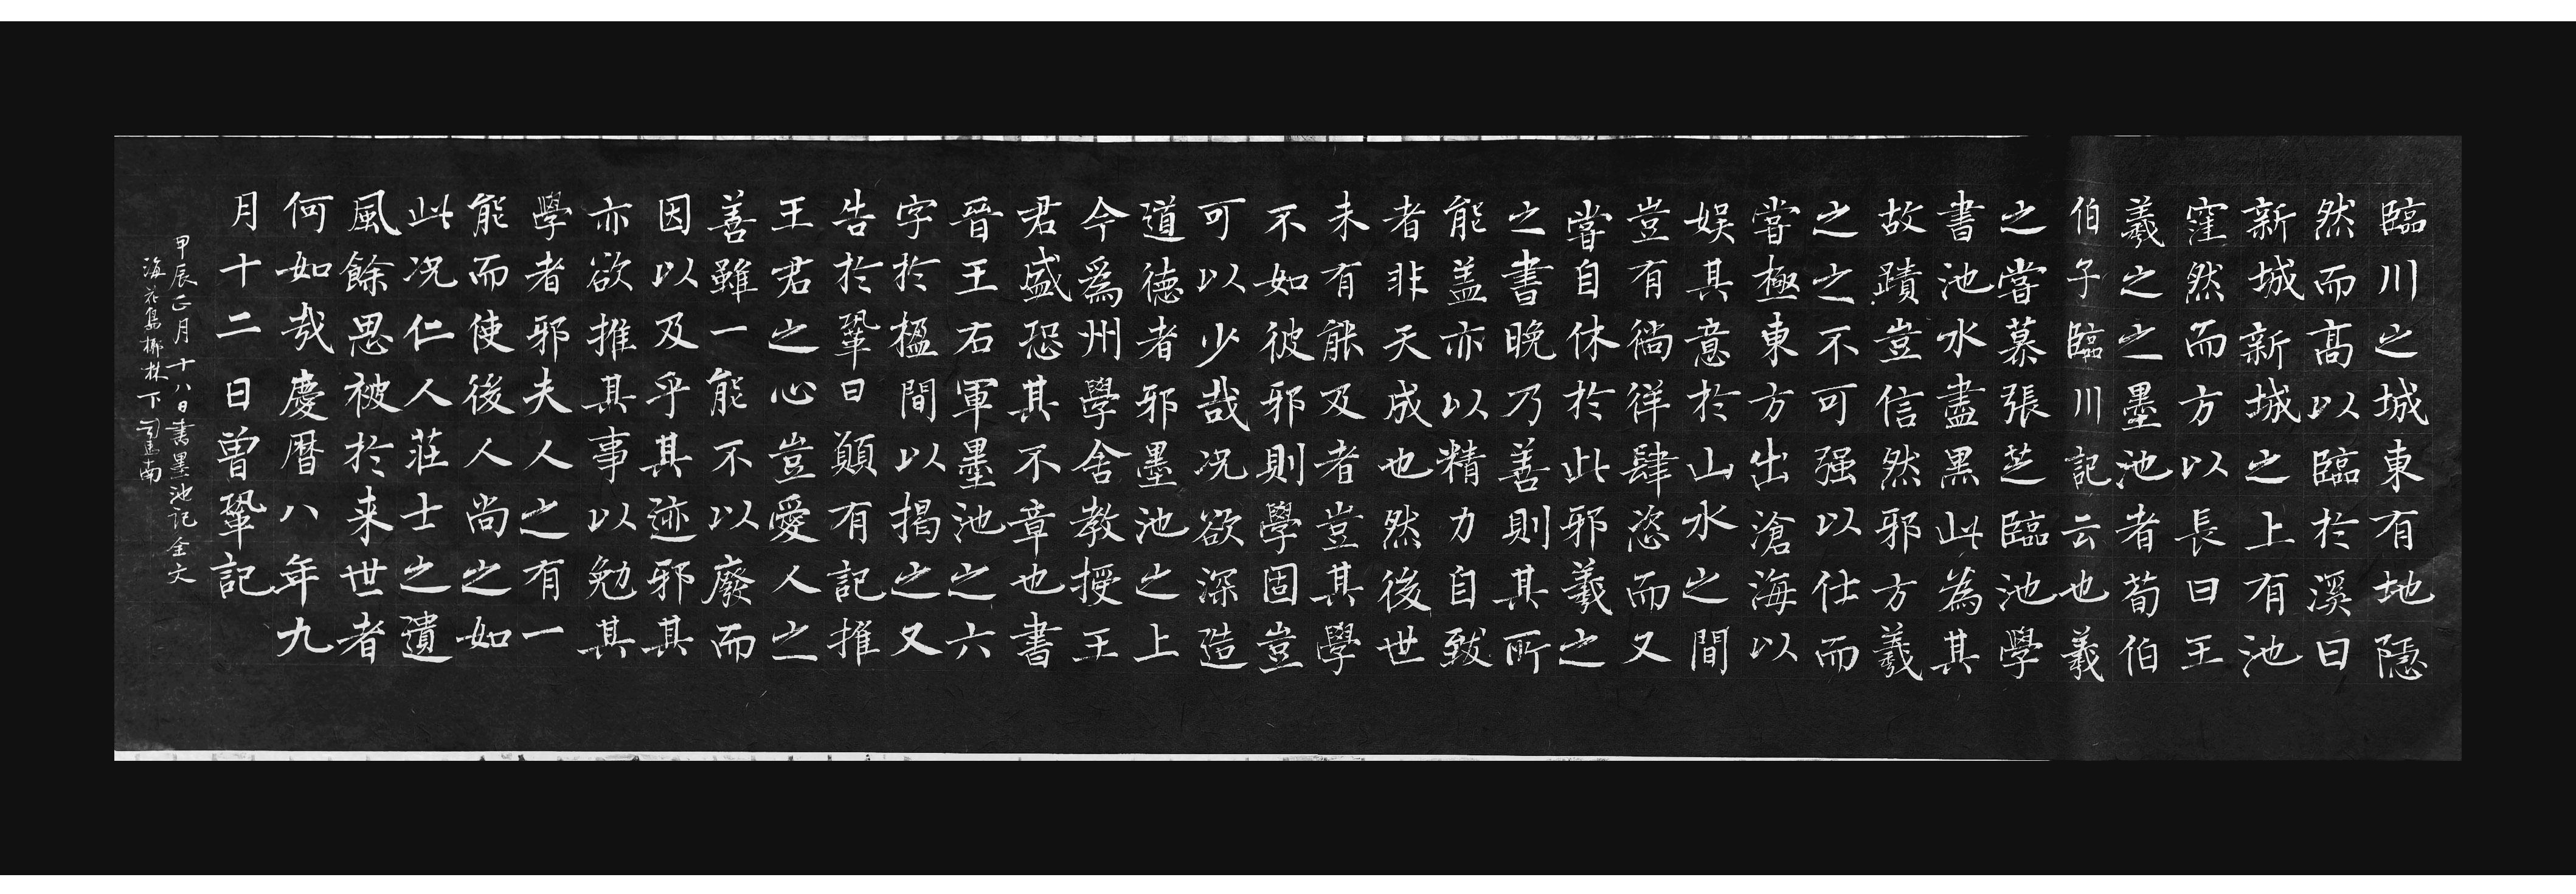 臨川之城東有地隱
然而髙以臨於溪曰
新城新城之上有池
窪然而方以長曰王
羲之之墨池者荀伯
伯子臨川記云也羲
之嘗慕張芝臨池學
書池水盡黑此為其
故蹟豈信然邪方羲
之之不可强以仕而
嘗極東方出滄海以
娛其意於山水之間
豈有徜徉肆恣而又
嘗自休於此邪羲之
之書晚乃善則其所
能盖亦以精力自致
者非天成也然後世
未有能及者豈其學
不如彼邪則學固豈
可以少哉况欲深造
道德者邪墨池之上
今爲州學舍教授王
君盛恐其不章也書
晉王右軍墨池之六
字於楹間以揭之又
告於鞏曰願有記推
王君之心豈愛人之
善雖一能不以廢而
因以及乎其迹邪其
亦欲推其事以勉其
學者邪夫人之有一
能而使後人尚之如
此况仁人莊士之遺
風餘思被於来世者
何如哉慶曆八年九
月十二日曾鞏記
甲辰正月十八日書墨池記全文
海花島椰林下司馬南